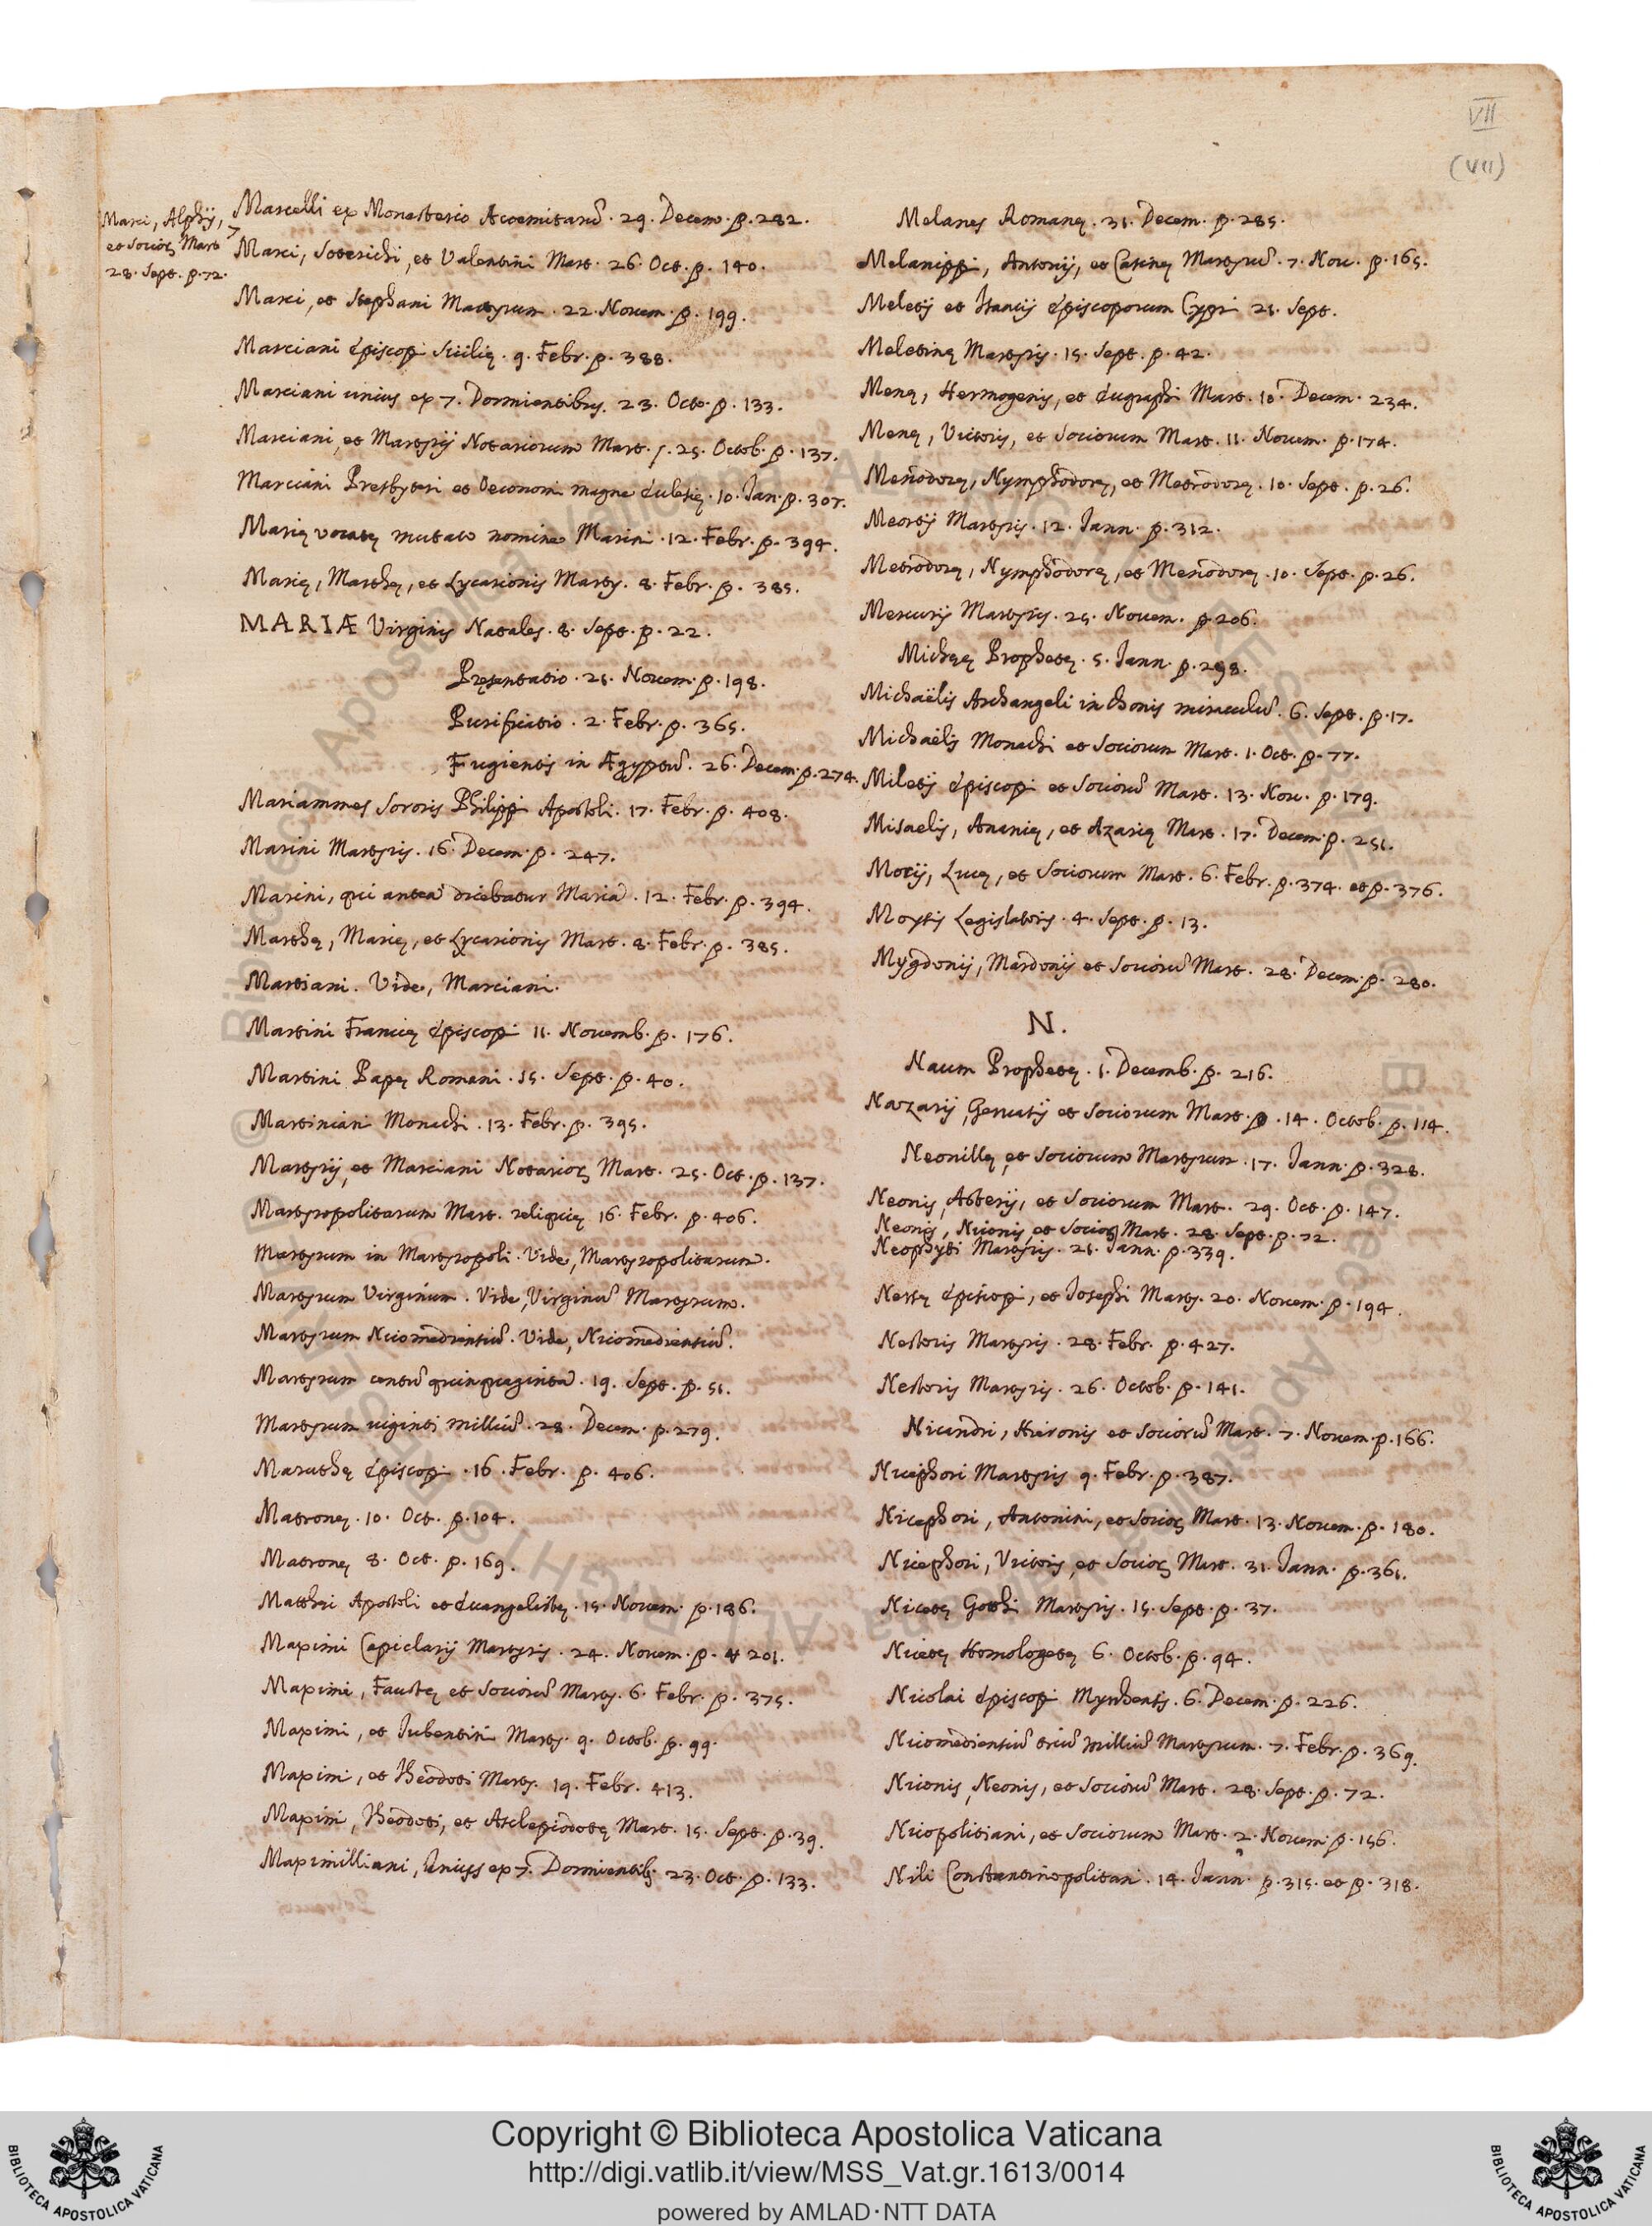 VII
(VII)
Marci, Alphij,
et socioꝝ Mart
28. Sept. p. 72.
Marcelli ex Monasterio Acoemitarū. 29. Decem. p. 282.
Marci, Soterichi, et Valentini Mart. 26. Oct. p. 140.
Marci, et Stephani Martyrum. 22. Novem. p. 199.
Marciani Episcopi Sicilię. 9. Febr. p. 388.
Marciani unius ex 7. Dormientibus. 23. Octo. p. 133.
Marciani, et Martyrij Notariorum Mart. 25. Octob. p. 137.
Marciani Presbyteri et Oeconomi magnę Eclesię. 10. Jan. p. 307.
Marię vocatę mutato nomine Marini. 12. Febr. p. 394.
Marię, Marthę, et Lycarionis Marty. 8. Febr. p. 385.
MARIÆ Virginis Natales. 8. Sept. p. 22.
Pręsentatio. 21. Novem. p. 198.
Purificatio. 2. Febr. p. 365.
Fugientis in Ægyptū. 26. Decem. p. 274.
Mariammes Sororis Philippi Apostoli. 17. Febr. p. 408.
Marini Martyris. 16. Decem. p. 247.
Marini, qui antea dicebatur Maria. 12. Febr. p. 394.
Marthę, Marię, et Lycarionis Mart. 8. Febr. p. 385.
Martiani. Vide, Marciani.
Martini Francię Episcopi 11. Novemb. p. 176.
Martini Papę Romani. 15. Sept. p. 40.
Martiniani Monachi. 13. Febr. p. 395.
Martyrij, et Marciani Notarioꝝ Mart. 25. Oct. p. 137.
Martyropolitarum Mart. reliquię 16. Febr. p. 406.
Martyrum in Martyropoli. Vide, Martyropolitarum.
Martyrum Virginum. Vide, Virginū Martyrum.
Martyrum Nicomedientiū. Vide, Nicomedientiū.
Martyrum centū quinquaginta. 19. Sept. p. 51.
Martyrum viginti milliū. 28. Decem. p. 279.
Maruthę Episcopi. 16. Febr. p. 406.
Matronę. 10. Oct. p. 104.
Matronę 8. Oct. p. 169.
Matthęi Apostoli et Evangelistę. 15. Novem. p. 186.
Maximi Capiclarij Martyris. 24. Novem. p. 201.
Maximi, Faustę et Sociorū Marty. 6. Febr. p. 375.
Maximi, et Iubentini Marty. 9. Octob. p. 99.
Maximi, et Theodoti Marty. 19. Febr. 413.
Maximi, Theodoti, et Asclepiodotę Mart. 15. Sept. p. 39.
Maximilliani, Unius ex 7. Dormientib. 23. Oct. p. 133.
Melanes Romanę. 31. Decem. p. 285.
Melanippi, Antonij, et Carinę Martyrū. 7. Nov. p. 165.
Meletij et Isacij Episcoporum Cypri 21. Sept.
Meletinę Martyris. 15. Sept. p. 42.
Menę, Hermogenis, et Eugraphi Mart. 10. Decem. 234.
Menę, Victoris, et Sociorum Mart. 11. Novem. p. 174.
Menodorę, Nymphodorę, et Metrodorę. 10. Sept. p. 26.
Meortij Martyris. 12. Jann. p. 312.
Metrodorę, Nymphodorę, et Menodorę. 10. Sept. p. 26.
Mercurij Martyris. 25. Novem. p. 206.
Michęę Prophetę. 5. Jann. p. 298.
Michaëlis Archangeli in Chonis miraculū. 6. Sept. p. 17.
Michaëlis Monachi et Sociorum Mart. 1. Oct. p. 77.
Miletij Episcopi et Sociorū Mart. 13. Nov. p. 179.
Misaelis, Ananię, et Azarię Mart. 17. Decem. p. 251.
Mocij, Lucę, et Sociorum Mart. 6. Febr. p. 374. et p. 376.
Moysis Legislatoris. 4. Sept. p. 13.
Mygdonij, Mardonij et Sociorū Mart. 28. Decem. p. 280.
N.
Naum Prophetę. 1. Decemb. p. 216.
Nazarij, Gervasij et Sociorum Mart. 14. Octob. p. 114.
Neonillę, et Sociorum Martyrum. 17. Jann. p. 328.
Neonis, Asterij, et Sociorum Mart. 29. Oct. p. 147.
Neonis, Niconis, et Socioꝝ Mart. 28. Sept. p. 72.
Neophyti Martyris. 21. Jann. p. 339.
Nersę Episcopi, et Josephi Marty. 20. Novem. p. 194.
Nestoris Martyris. 28. Febr. p. 427.
Nestoris Martyris. 26. Octob. p. 141.
Nicandri, Hieronis et Sociorū Mart. 7. Novem. p. 166.
Nicephori Martyris 9. Febr. p. 387.
Nicephori, Antonini, et Socioꝝ Mart. 13. Novem. p. 180.
Nicephori, Victoris, et Socioꝝ Mart. 31. Jann. p. 361.
Nicetę Gothi Martyris. 15. Sept. p. 37.
Nicetę Homologetę 6. Octob. p. 94.
Nicolai Episcopi Myrhentis. 6. Decem. p. 226.
Nicomedientiū triū milliū Martyrum. 7. Febr. p. 369.
Niconis, Neonis, et Sociorū Mart. 28. Sept. p. 72.
Nicopolitiani, et Sociorum Mart. 2. Novem. p. 156.
Nili Constantinopolitani. 14. Jann. p. 315. et p. 318.
Copyright © Biblioteca Apostolica Vaticana
http://digi.vatlib.it/view/MSS_Vat.gr.1613/0014
powered by AMLAD·NTT DATA
BIBLIOTECA APOSTOLICA VATICANA
BIBLIOTECA APOSTOLICA VATICANA